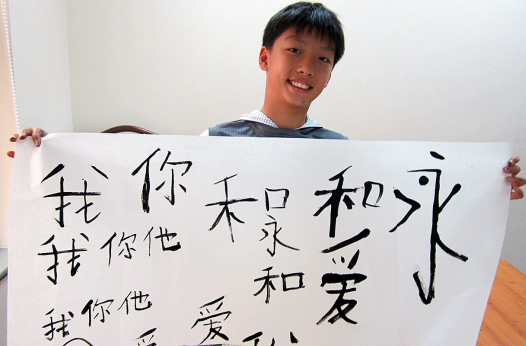 我你和和永
我你他永
和爱
我你他爱